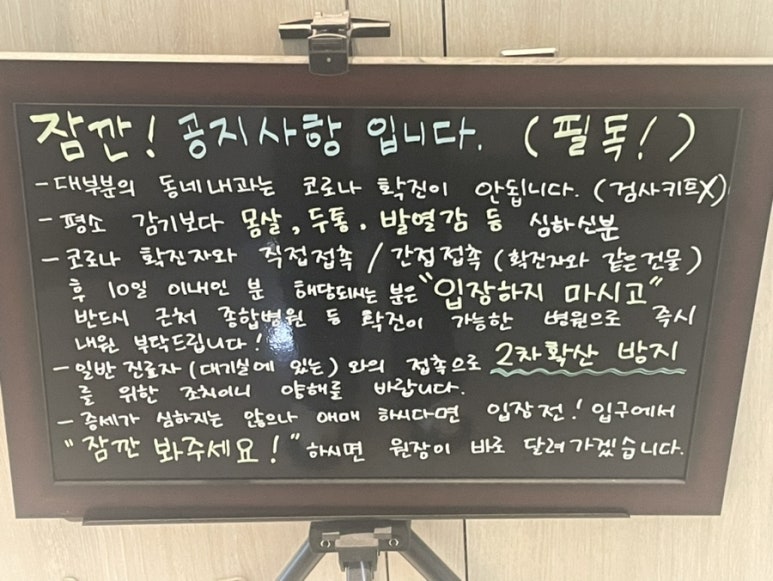 잠깐! 공지사항 입니다. (필독!)
- 대부분의 동네내과는 코로나 확진이 안됩니다. (검사키트X)
- 평소 감기보다 몽살, 두통, 발열감 등 심하신분
- 코로나 확진자와 직접접촉 / 간접접촉 (확진자와 같은건물)
후 10일 이내인 분 해당되시는 분은 "입장하지 마시고"
반드시 근처 종합병원 등 확진이 가능한 병원으로 즉시
내원 부탁드립니다!
- 일반 진료자 (대기실에 있는) 와의 접촉으로 2차확산 방지
를 위한 조치이니 양해를 바랍니다.
- 증세가 심하지는 않으나 애매 하시다면 입장전! 입구에서
"잠깐 봐주세요!" 하시면 원장이 바로 달려가겠습니다.